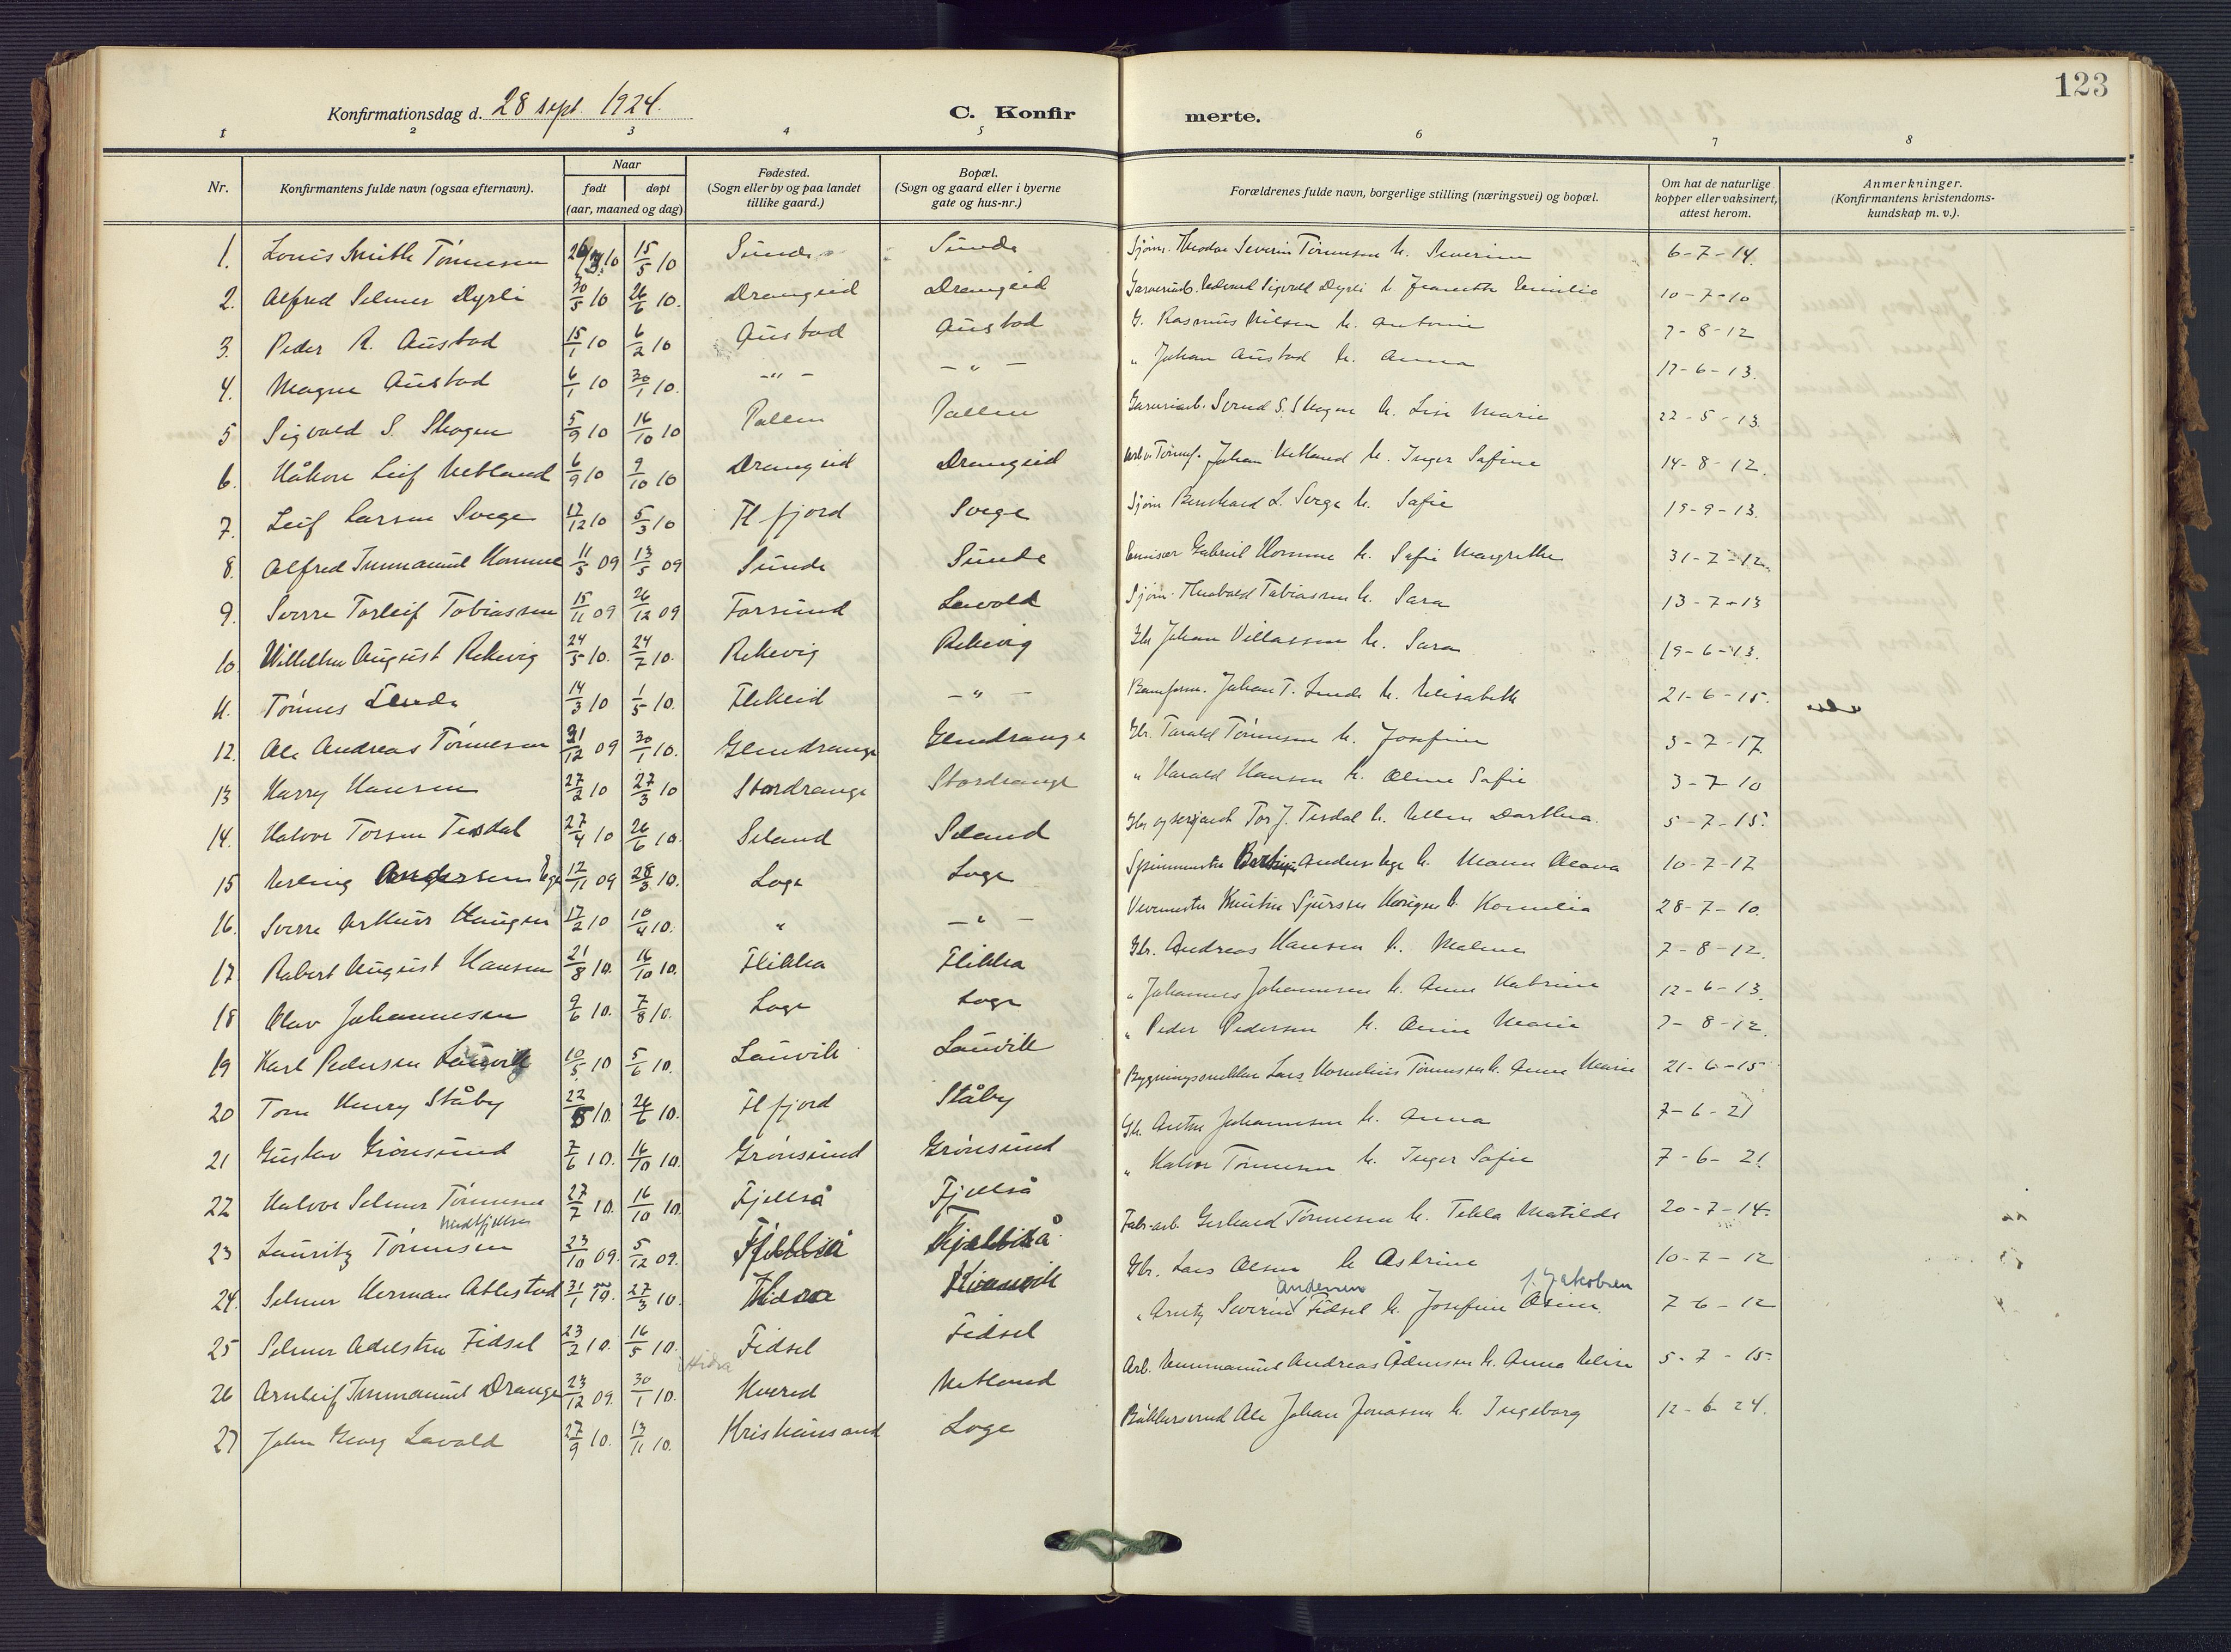 123
Konfirmationsdag d. 28 sept 1924.
C. Konfirmerte.
1 2 3 4 5 6 7 8
Nr. Konfirmantens fulde navn (ogsaa efternavn). Naar født døpt (aar, maaned og dag) Fødested. (Sogn eller by og paa landet tillike gaard.) Bopæl. (Sogn og gaard eller i byerne gate og hus-nr.) Forældrenes fulde navn, borgerlige stilling (næringsvei) og bopæl. Om hat de naturlige kopper eller vaksinert, attest herom. Anmerkninger. (Konfirmantens kristendomskundskap m. v.).
1. Louis Smith Tønnesen 10 15/5 10 Sunde Sunde Sjøm. Severin Tønnesen h. Severine 6-7-14.
2. Alfred Selmer Dyrli 30/5 10 26/6 10. Drangeid Drangeid Sigvald Dyrli h. Jeanette Emilie 10-7-10
3. Peder R. Austad 15/1 10 6/2 10 Austad Austad G. Rasmus Nilsen h. Antonie 7-8-12
4. Magne Austad 6/1 10 30/1 10. -"- -"- " Johan Austad h. Anna 17-6-13.
5 Sigvald S. Skogen 5/9 10 16/10 10 Pallen Pallen Garveriarb. Svend S. Skogen h. Lise Marie 22-5-13.
6. Håkon Leif Netland 6/9 10 9/10 10 Drangeid Drangeid Johan Netland h. Inger Sofine 14-8-12.
7. Leif Larsen Svege 17/12 10 5/3 10 Fl fjord Svege Sjøm Bernhard L. Svege h. Sofie 19-9-13.
8. Alfred Immanuel Homme 11/5 09 13/5 09 Sunde Sunde Emissær Gabriel Homme h. Sofie Margrethe 31-7-12
9. Sverre Torleif Tobiassen 15/11 09 26/12 09 Farsund Lavold Sjøm. Theobald Tobiassen h. Sara 13-7-13
10. Wilhelm August Rekevig 24/5 10. 24/7 10. Rekevig Rekevig Gbr Johan Villassen h. Sara 19-6-13.
11. Tønnes Lunde 14/3 10 1/5 10. Flikeid -"- Johan T. Lunde h. Elisabeth 21-6-15.
12. Ole Andreas Tønnesen 21/12 09 30/1 10. Glendrange Glendrange Gbr. Tarald Tønnesen h. Josefine 3-7-17.
13 Harry Hansen 27/2 10 27/3 10 Stordrange Stordrange " Harald Hansen h. Oline Sofie 3-7-10
14. Halvor Torsen Tesdal 27/4 10 26/6 10. Seland Seland Gbr og sersjant Tor J. Tesdal h. Ellen Dorthea. 5-7-15.
15 Erling Andersen Ege 17/11 09 28/3 10. Loge Loge Spinnemester Anders Ege h. 10-7-17
16. Sverre Arthur Haugen 17/2 10 10/4 10. " -"- Vevemester Sjursen Haugen h. Kornelia 28-7-10.
17. Robert August Hansen 21/8 10. 16/10 10. Flikka Flikka Gbr. Andreas Hansen h. Malene 7-8-12.
18 Olav Johannesen 9/6 10. 7/8 10. Loge Loge " Johannes Johannesen h. Anne Katrine 12-6-13.
19 Karl Pedersen Lauvik 10/5 10 5/6 10. Lauvik Lauvik " Peder Pedersen h. Anne Marie 7-8-12.
20 Tom Henry Ståby 22/5 10. 26/6 10. Fl fjord Ståby Bygningssnekker Lars Kornelius Tønnessen h. Anne Marie 21-6-15
21 Gustav Grønsund 7/6 10. 16/10 10. Grønsund Grønsund Gb. Anton Johannesen h. Anna 7-6-21
22 Halvor Selmer Tønnesen 27/7 10. 16/10 10. Fjellså Fjellså " Halvor Tønnesen h. Inger Sofie 7-6-21
23 Lauritz Tønnesen 23/10 09. 5/12 09. Fab-arb. Gerhard Tønnesen h. Tekla Matilde 20-7-14.
24. Selmer Herman Abbestad 31/1 10. 27/3 10. Hidra Gbr. Lars Olsen h Astrine 10-7-12
25 Selmer Adelsten Fidsel 23/2 10. 16/5 10. Fidsel Fidsel " Arntz Severin Andersen Fidsel h. Josefine Oline f. Jakobsen 7-6-12
26 Arnleif Immanuel Drange 23/12 09. 30/1 10. Hidra Kvered Netland Arb. Emmanuel Andreas Ådensen h. Anna Elise 5-7-15.
27 John Georg Lavold 27/9 10. 13/11 10. Kristiansand Loge Bøkkersvend Ole Johan Jonassen h. Ingeborg 12-6-24.